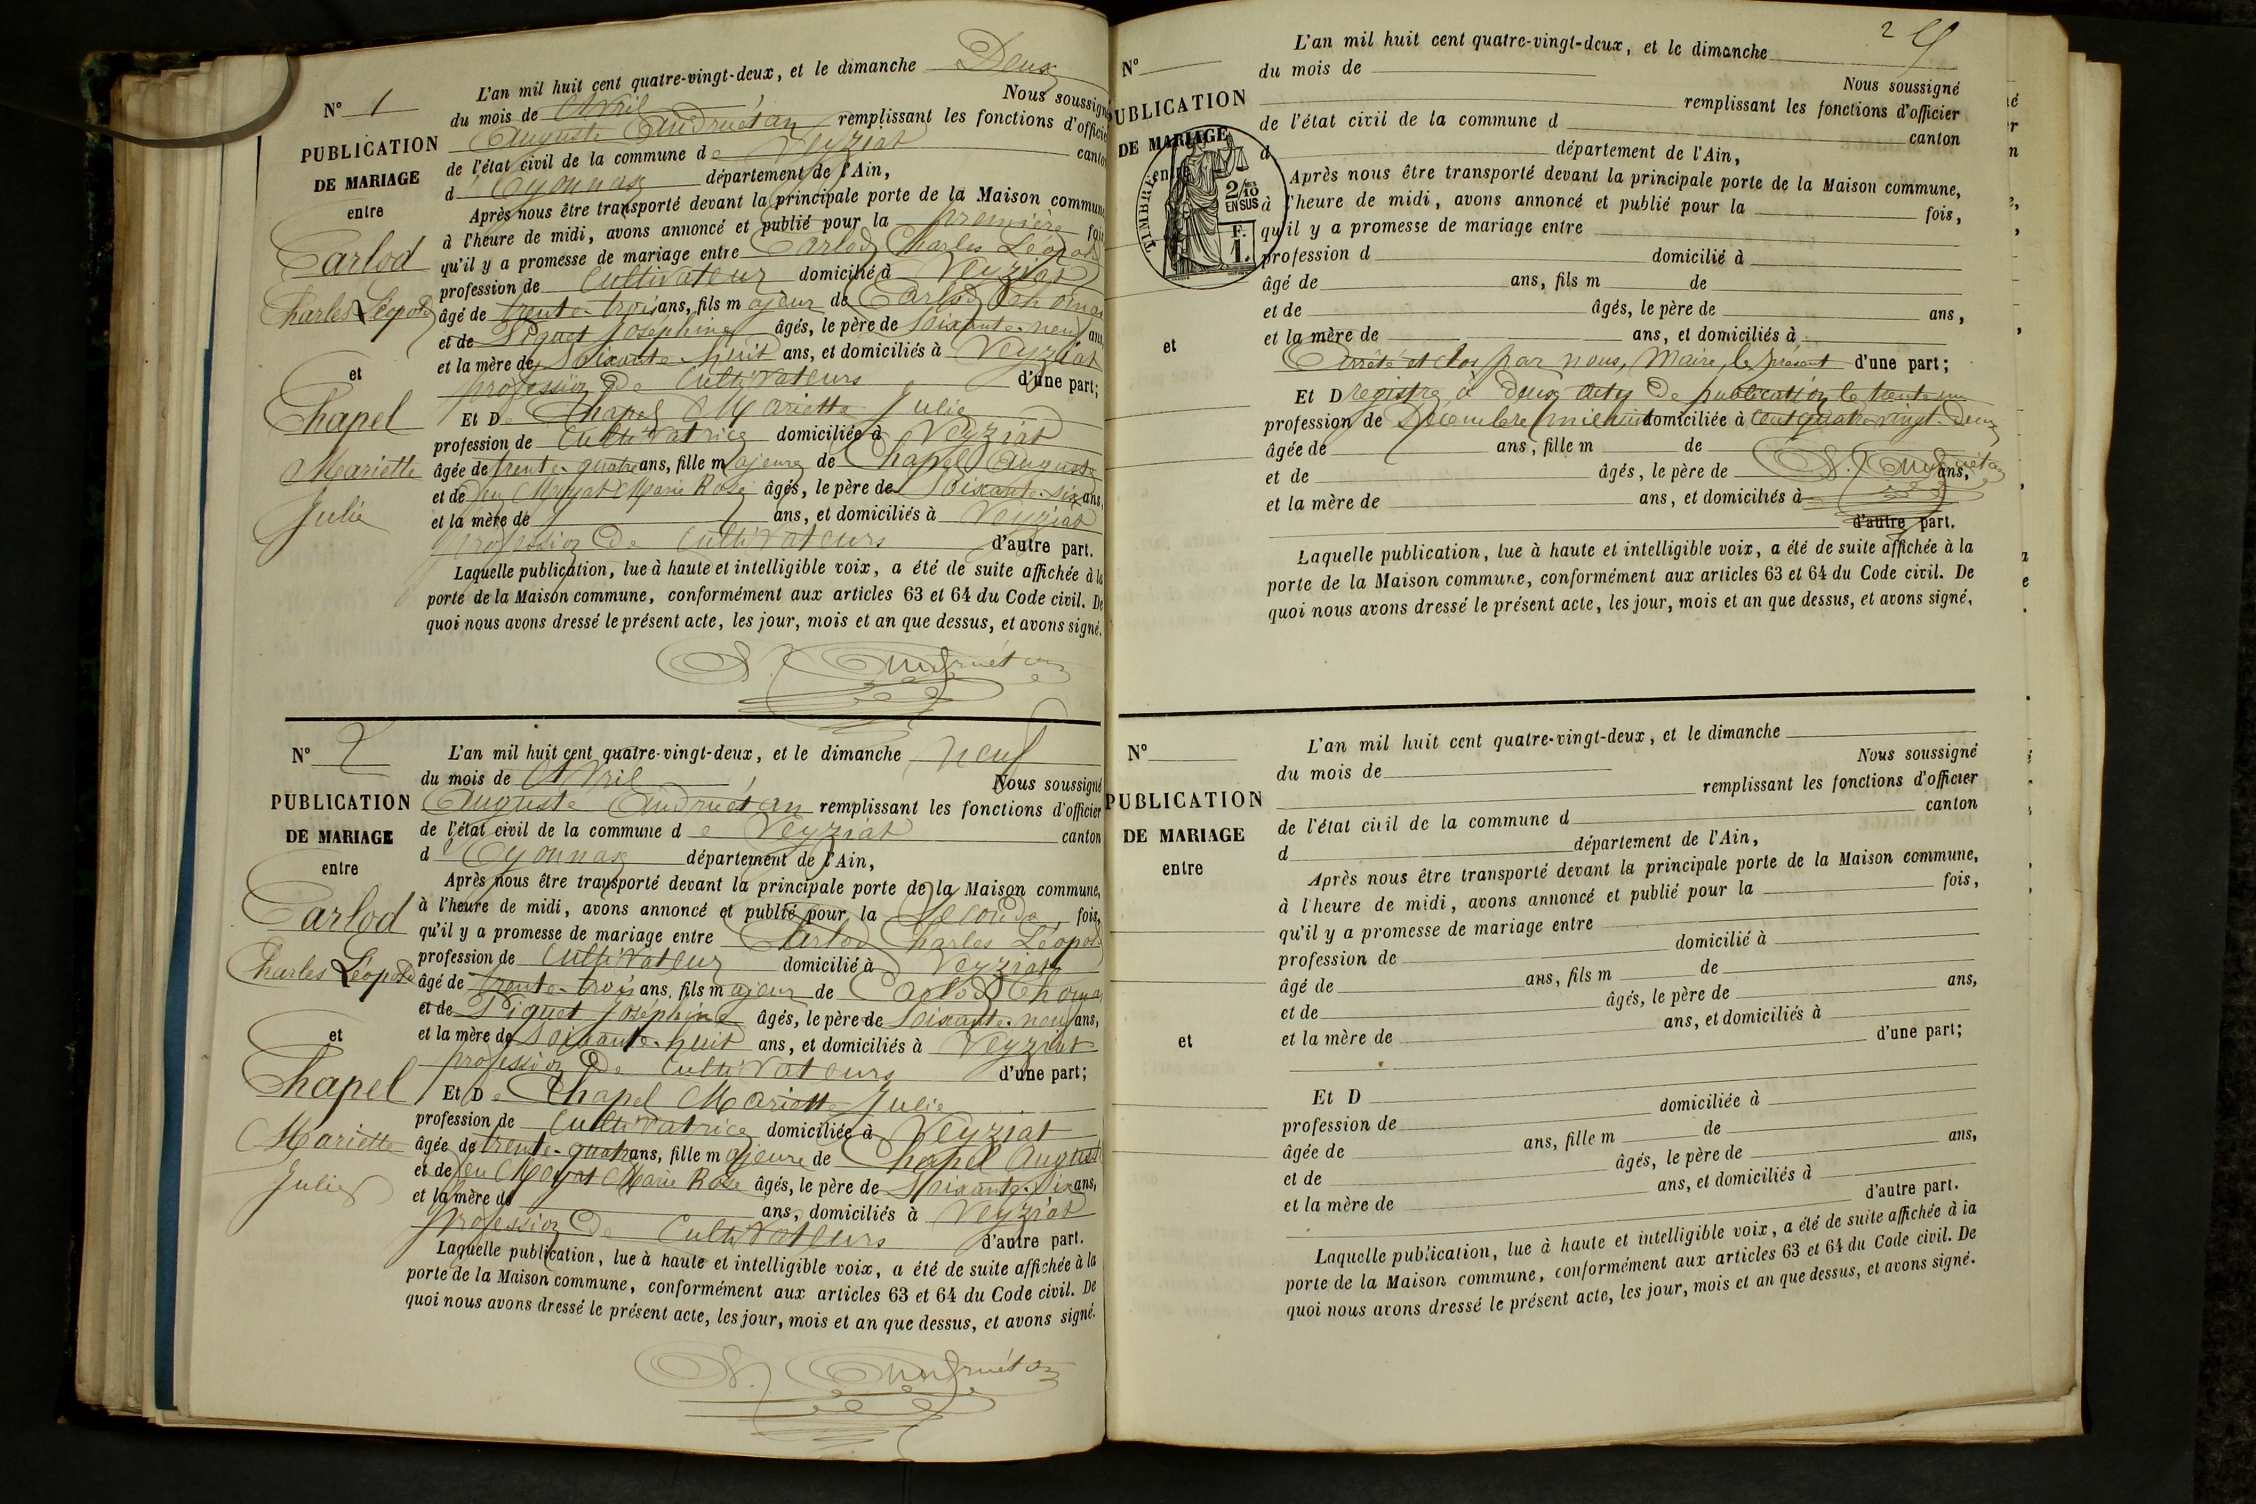 N° 1
PUBLICATION
DE MARIAGE
entre
Carlod
Charles Léopold
et
Chapel
Mariette
Julie
L'an mil huit cent quatre-vingt-deux, et le dimanche Deux
du mois de Avril Nous soussigné
Auguste Andruétan remplissant les fonctions d'officier
de l'état civil de la commune de Veyziat canton
d'Oyonnax département de l'Ain,
Après nous être transporté devant la principale porte de la Maison commune,
à l'heure de midi, avons annoncé et publié pour la première fois,
qu'il y a promesse de mariage entre Carlod Charles Léopold
profession de Cultivateur domicilié à Veyziat
âgé de trente-trois ans, fils majeur de Carlod Thomas
et de Piquet Joséphine âgés, le père de soixante-neuf ans,
et la mère de soixante-huit ans, et domiciliés à Veyziat
profession de Cultivateurs d'une part;
Et De Chapel Mariette Julie
profession de Cultivatrice domiciliée à Veyziat
âgée de trente-quatre ans, fille majeure de Chapel Auguste
et de feu Moyat Marie Rose âgés, le père de soixante-six ans,
et la mère de ans, et domiciliés à Veyziat
profession de Cultivateurs d'autre part.
Laquelle publication, lue à haute et intelligible voix, a été de suite affichée à la
porte de la Maison commune, conformément aux articles 63 et 64 du Code civil. De
quoi nous avons dressé le présent acte, les jour, mois et an que dessus, et avons signé.
A. Andruétan
N° 2
PUBLICATION
DE MARIAGE
entre
Carlod
Charles Léopold
et
Chapel
Mariette
Julie
L'an mil huit cent quatre-vingt-deux, et le dimanche neuf
du mois de Avril Nous soussigné
Auguste Andruétan remplissant les fonctions d'officier
de l'état civil de la commune de Veyziat canton
d'Oyonnax département de l'Ain,
Après nous être transporté devant la principale porte de la Maison commune,
à l'heure de midi, avons annoncé et publié pour la Seconde fois,
qu'il y a promesse de mariage entre Carlod Charles Léopold
profession de Cultivateur domicilié à Veyziat
âgé de trente-trois ans, fils majeur de Carlod Thomas
et de Piquet Joséphine âgés, le père de soixante-neuf ans,
et la mère de soixante-huit ans, et domiciliés à Veyziat
profession de Cultivateurs d'une part;
Et De Chapel Mariette Julie
profession de Cultivatrice domiciliée à Veyziat
âgée de trente-quatre ans, fille majeure de Chapel August
et de feu Moyat Marie Rose âgés, le père de soixante-six ans,
et la mère de ans, domiciliés à Veyziat
profession de Cultivateurs d'autre part.
Laquelle publication, lue à haute et intelligible voix, a été de suite affichée à la
porte de la Maison commune, conformément aux articles 63 et 64 du Code civil. De
quoi nous avons dressé le présent acte, les jour, mois et an que dessus, et avons signé.
A. Andruétan
2
N°
PUBLICATION
DE MARIAGE
entre
TIMBRE
2/10
EN SUS
F.
1.
et
L'an mil huit cent quatre-vingt-deux, et le dimanche
du mois de Nous soussigné
remplissant les fonctions d'officier
de l'état civil de la commune d canton
d département de l'Ain,
Après nous être transporté devant la principale porte de la Maison commune,
à l'heure de midi, avons annoncé et publié pour la fois,
qu'il y a promesse de mariage entre
profession d domicilié à
âgé de ans, fils m de
et de âgés, le père de ans,
et la mère de ans, et domiciliés à
Arrêté et clos par nous, Maire, le présent d'une part;
Et D registre à deux actes de publication le trente un
profession de Décembre mil huit domiciliée à cent quatre-vingt-deux
âgée de ans, fille m de
et de âgés, le père de A. Andruétan ans,
et la mère de ans, et domiciliés à
d'autre part.
Laquelle publication, lue à haute et intelligible voix, a été de suite affichée à la
porte de la Maison commune, conformément aux articles 63 et 64 du Code civil. De
quoi nous avons dressé le présent acte, les jour, mois et an que dessus, et avons signé,
N°
PUBLICATION
DE MARIAGE
entre
et
L'an mil huit cent quatre-vingt-deux, et le dimanche
du mois de Nous soussigné
remplissant les fonctions d'officier
de l'état civil de la commune d canton
d département de l'Ain,
Après nous être transporté devant la principale porte de la Maison commune,
à l'heure de midi, avons annoncé et publié pour la fois,
qu'il y a promesse de mariage entre
profession de domicilié à
âgé de ans, fils m de
et de âgés, le père de ans,
et la mère de ans, et domiciliés à
d'une part;
Et D
profession de domiciliée à
âgée de ans, fille m de
et de âgés, le père de ans,
et la mère de ans, et domiciliés à
d'autre part.
Laquelle publication, lue à haute et intelligible voix, a été de suite affichée à la
porte de la Maison commune, conformément aux articles 63 et 64 du Code civil. De
quoi nous avons dressé le présent acte, les jour, mois et an que dessus, et avons signé.